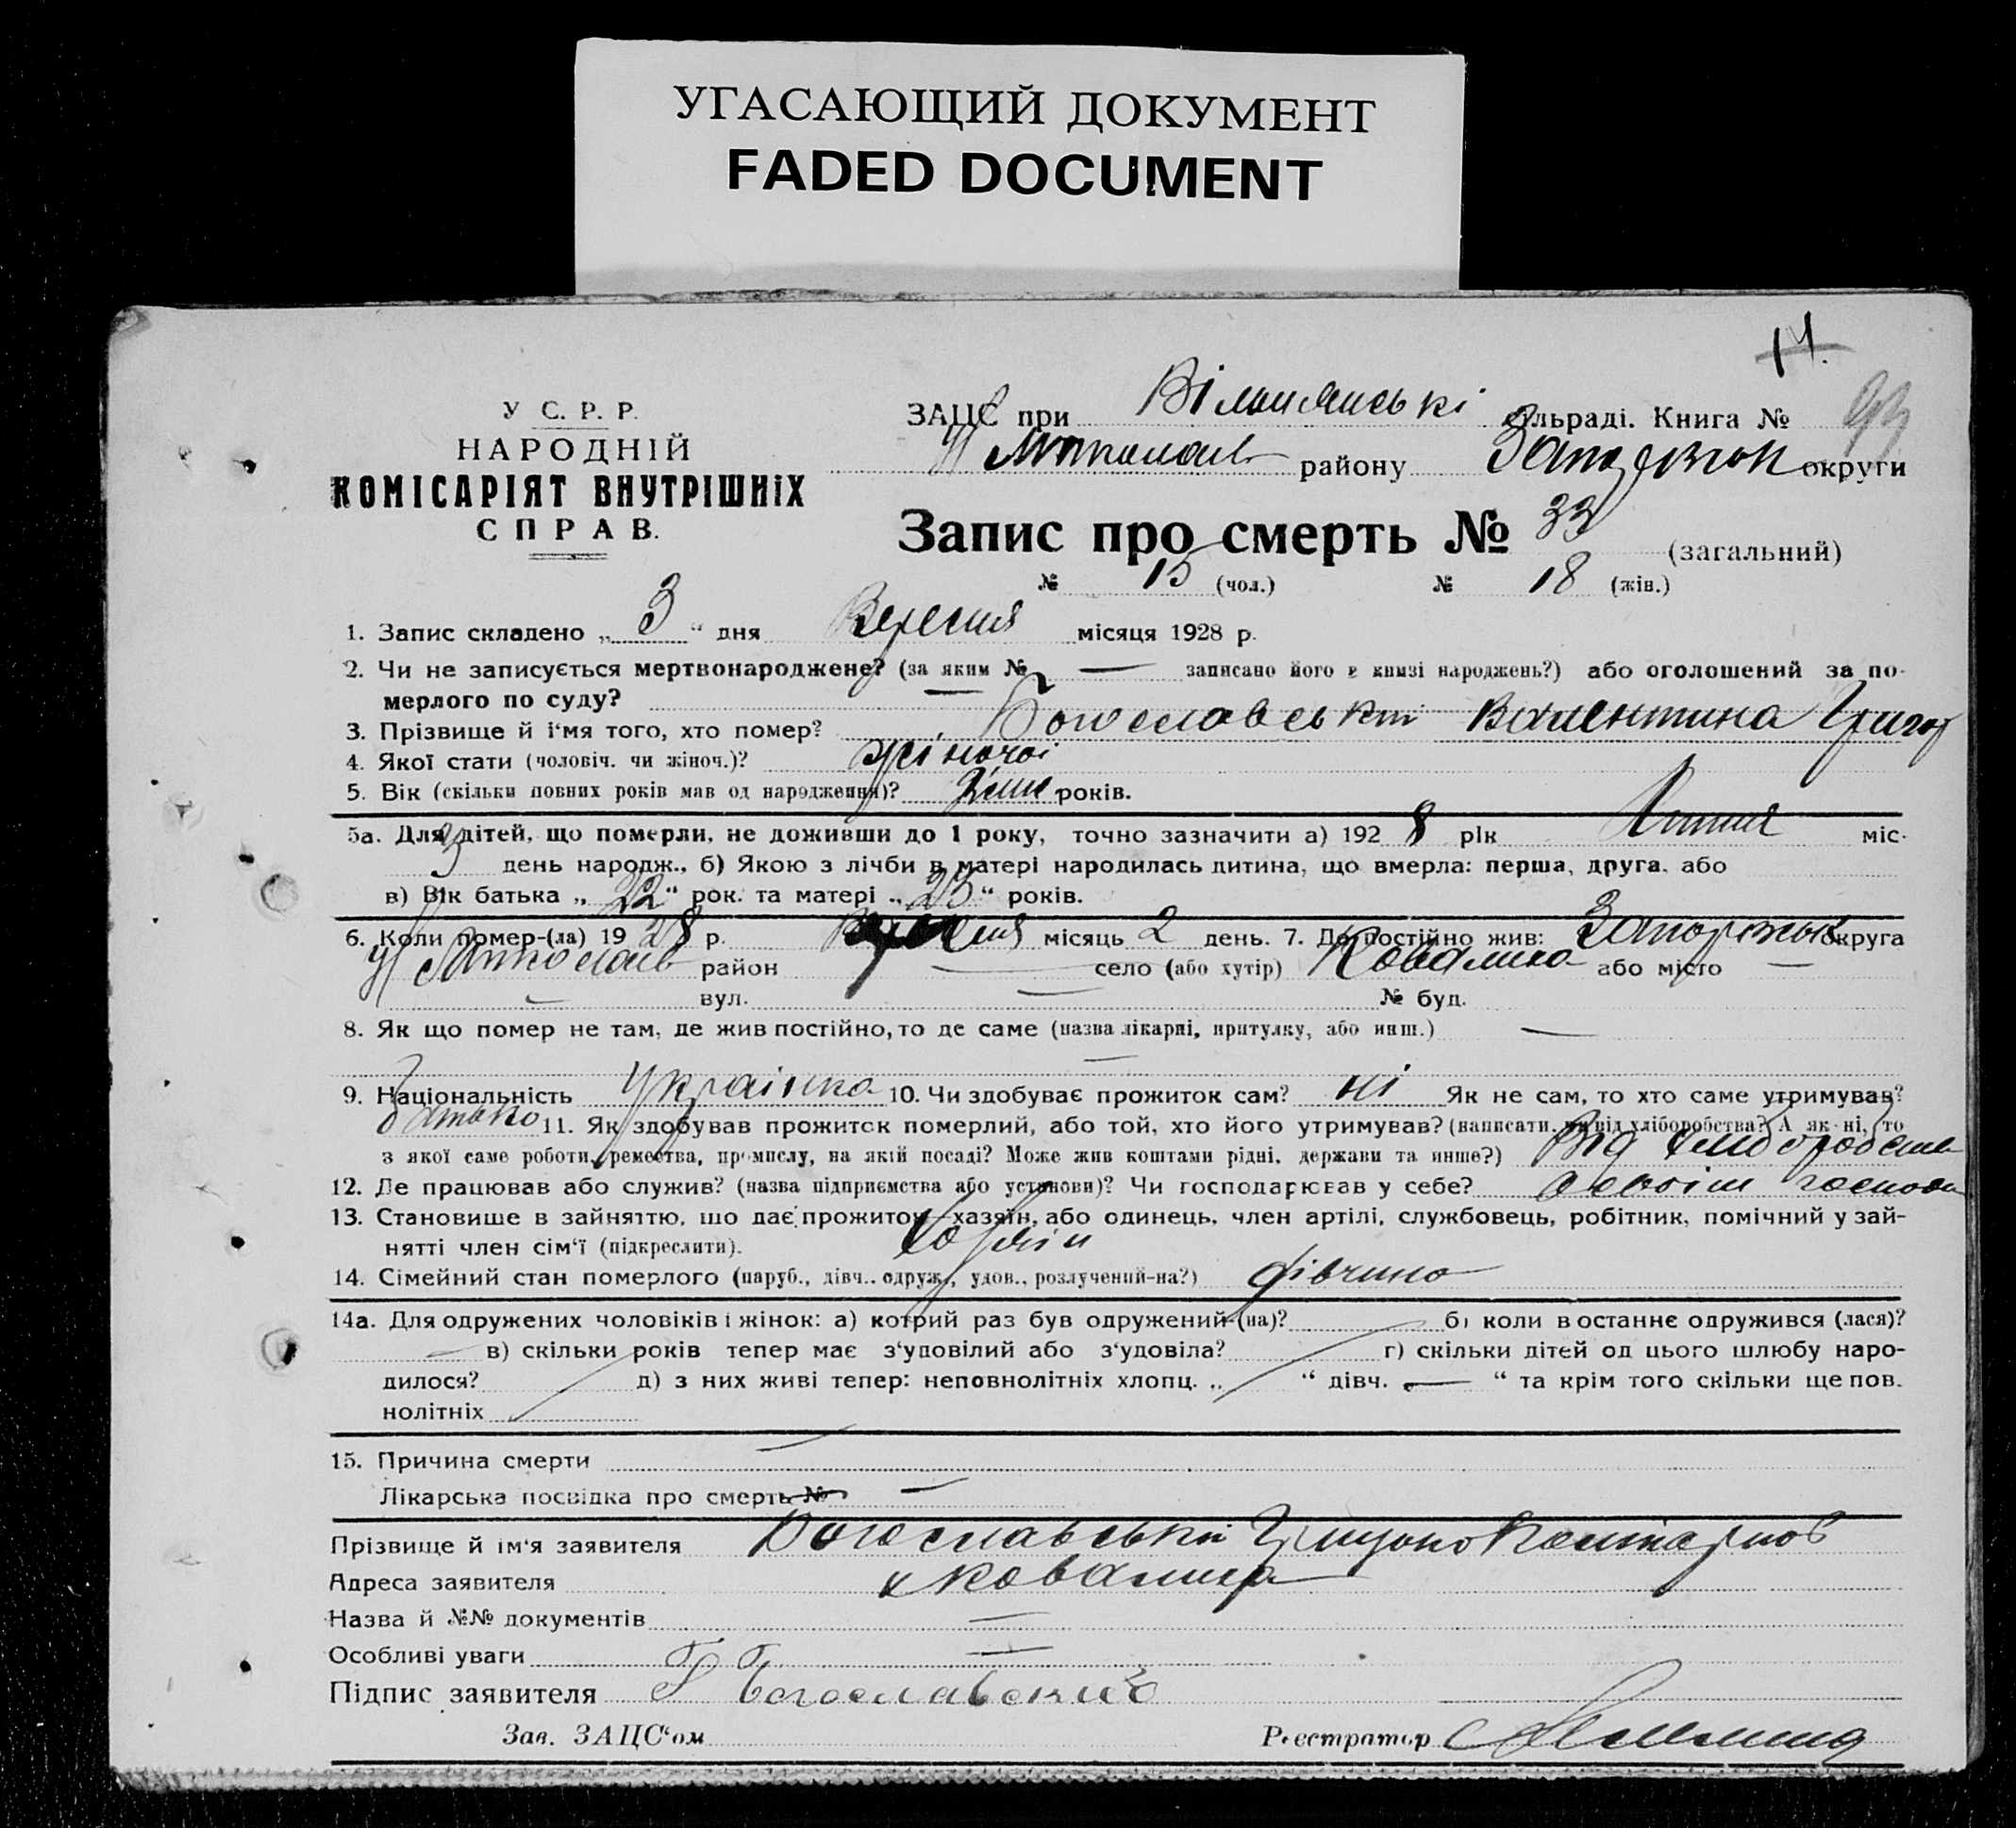 УГАСАЮЩИЙ ДОКУМЕНТ
FADED DOCUMENT
14.
У С. Р. Р.
НАРОДНІЙ
КОМІСАРІЯТ ВНУТРІШНІХ
СПРАВ.
ЗАЦС при сільраді. Книга №
району округи
Запис про смерть № 33 (загальний)
№ 15 (чол.) № 18 (жін.)
1. Запис складено „ 3 “ дня Вересня місяця 1928 р.
2. Чи не записується мертвонароджене? (за яким № — записано його в книзі народжень?) або оголошений за по-
мерлого по суду? —
3. Прізвище й і‘мя того, хто помер? Богославські Валентина Григор
4. Якої стати (чоловіч. чи жіноч.)? жіночоі
5. Вік (скільки повних років мав од народження)? років.
5а. Для дітей, що померли, не доживши до 1 року, точно зазначити а) 192 8 рік Липня міс.
3 день народж., б) Якою з лічби в матері народилась дитина, що вмерла: перша, друга, або
в) Вік батька „ 22 “ рок. та матері „ 23 “ років.
6. Коли помер-(ла) 19 28 р. Вересня місяць 2 день. 7. Де постійно жив: Запоріжськ округа
район — село (або хутір) або місто —
— вул. — № буд.
8. Як що помер не там, де жив постійно, то де саме (назва лікарні, притулку, або инш.) —
—
9. Національність Украінка 10. Чи здобуває прожиток сам? ні Як не сам, то хто саме утримував?
батько 11. Як здобував прожиток померлий, або той, хто його утримував? (написати, чи від хліборобства? А як ні, то
з якої саме роботи, ремества, промислу, на якій посаді? Може жив коштами рідні, держави та инше?) Від
12. Де працював або служив? (назва підприємства або установи)? Чи господарював у себе?
13. Становище в зайняттю, що дає прожиток—хазяїн, або одинець, член артілі, службовець, робітник, помічний у зай-
нятті член сім‘ї (підкреслити). Хазяін
14. Сімейний стан померлого (паруб., дівч., одруж., удов., розлучений-на?) дівчина
14а. Для одружених чоловіків і жінок: а) котрий раз був одружений (на)? б) коли востаннє одружився (лася)?
— в) скільки років тепер має з‘уповілий або з‘удовіла? г) скільки дітей од цього шлюбу наро-
дилося? д) з них живі тепер: неповнолітніх хлопц. „ “ дівч. — “ та крім того скільки ще пов.
нолітніх
15. Причина смерти —
Лікарська посвідка про смерть № —
Прізвище й ім‘я заявителя Богославські
Адреса заявителя
Назва й №№ документів —
Особливі уваги —
Підпис заявителя Г Богославский
Зав. ЗАЦС‘ом Реєстратор